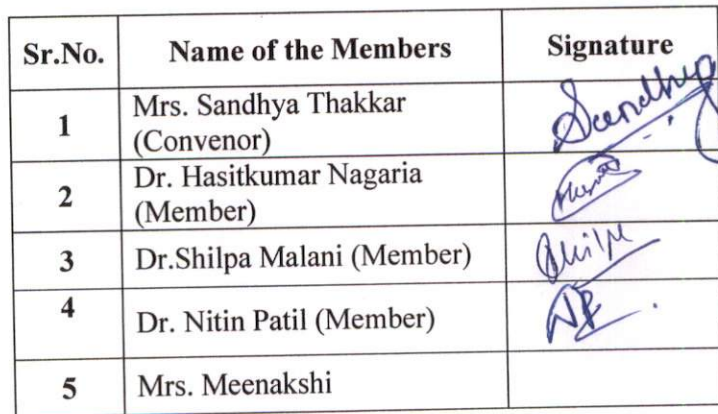 Sr.No. Name of the Members Signature
1 Mrs. Sandhya Thakkar
(Convenor) Sandhya
2 Dr. Hasitkumar Nagaria
(Member)
3 Dr.Shilpa Malani (Member) Shilpa
4 Dr. Nitin Patil (Member) NP
5 Mrs. Meenakshi